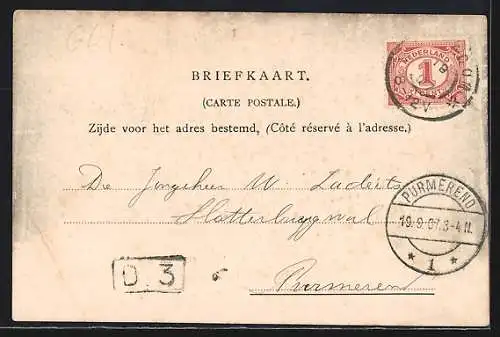 BRIEFKAART.
(CARTE POSTALE.)
Zijde voor het adres bestemd, (Côté réservé à l'adresse.)
NEDERLAND
1
De Jongeheer W.
PURMEREND
19.9.07.3-4N.
1
D. 3
Purmerend